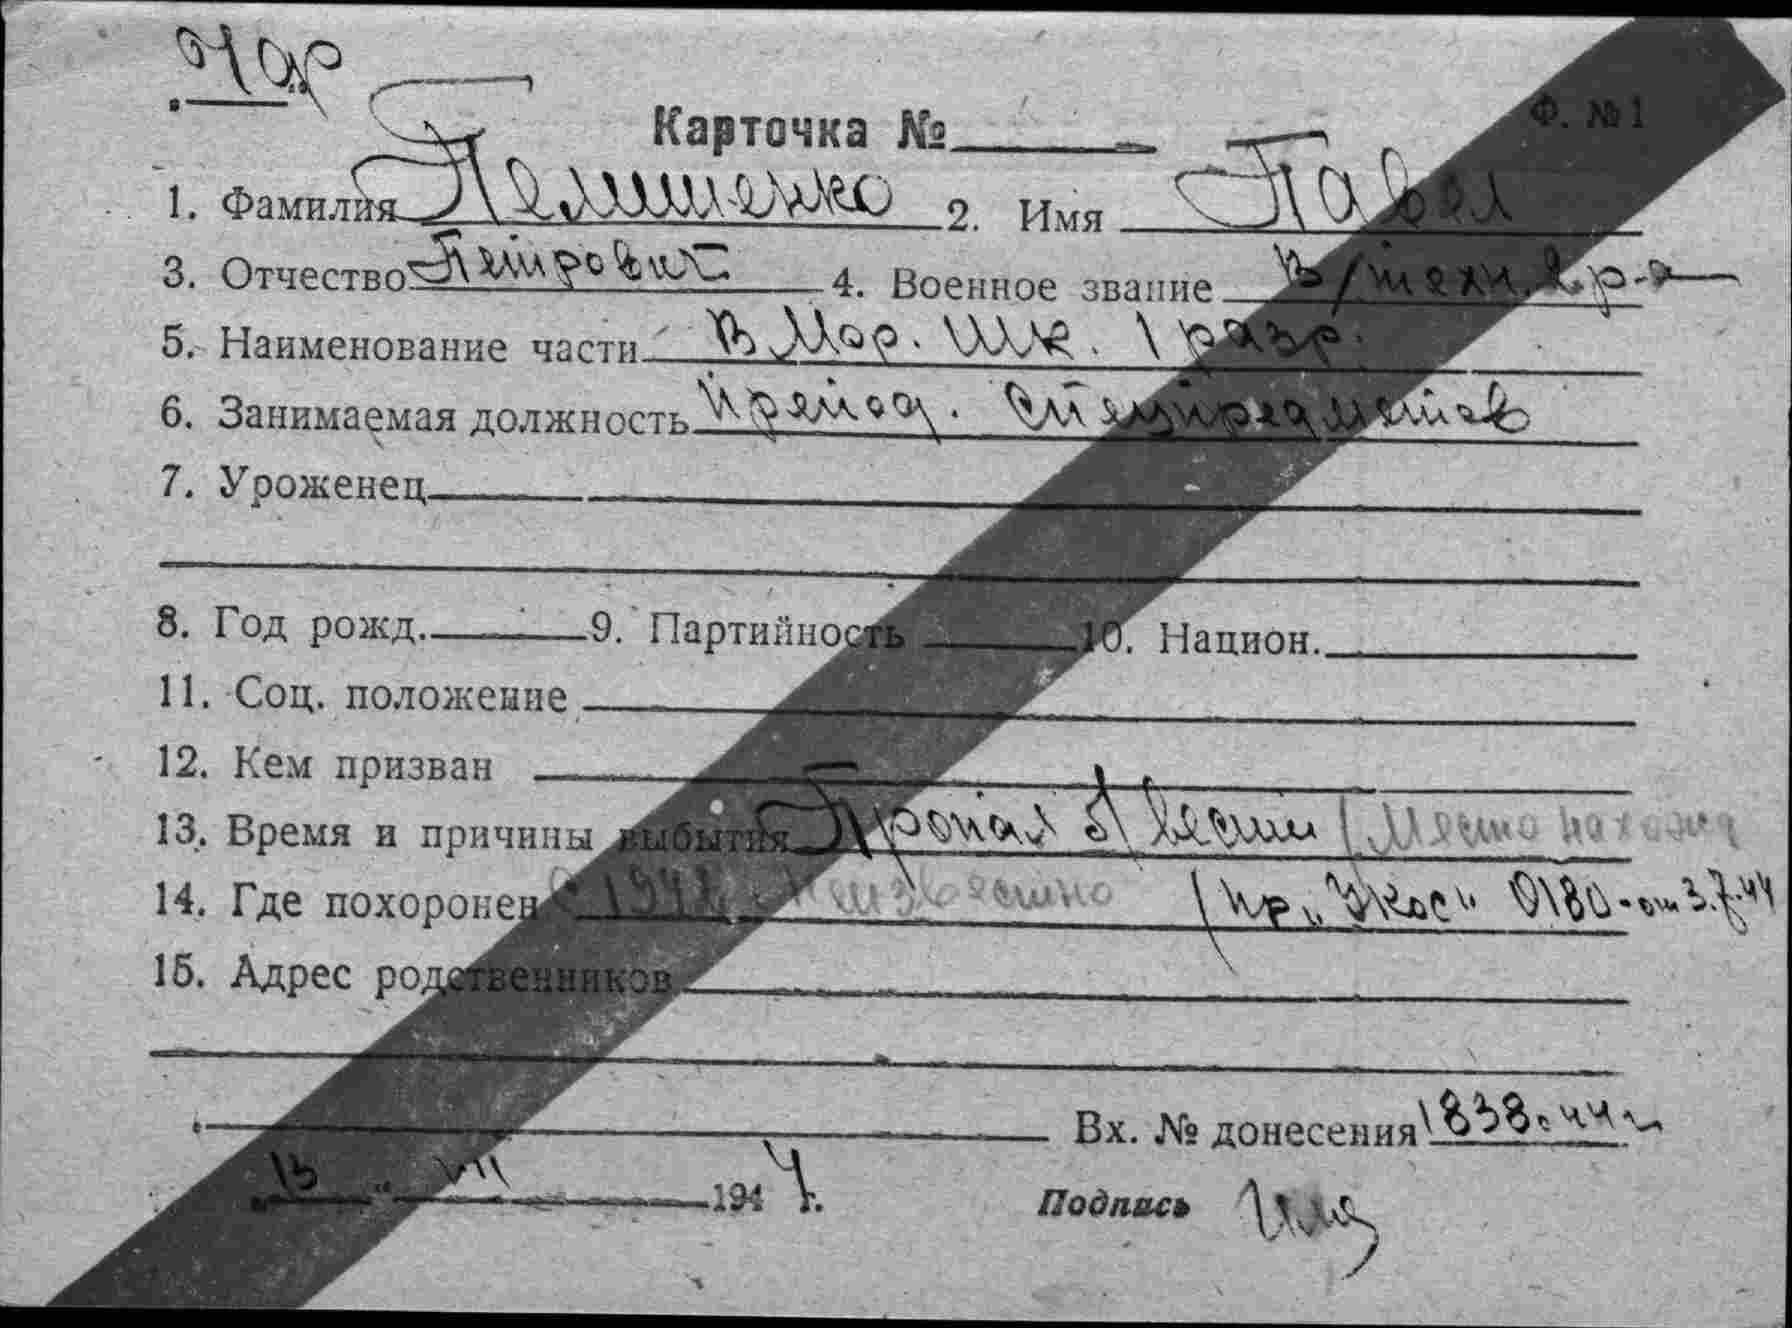 Карточка № Ф. № 1
1. Фамилия 2. Имя Павел
3. Отчество Петрович 4. Военное звание в/техн. 2 р-а
5. Наименование части В. Мор. Шк. 1 разр.
6. Занимаемая должность Препод. спецпредметов
7. Уроженец
8. Год рожд. 9. Партийность 10. Национ.
11. Соц. положение
12. Кем призван
13. Время и причины выбытия Пропал б/вести
14. Где похоронен неизвестно (пр. 0180 от 3.7.44
15. Адрес родственников
Вх. № донесения 1838с 44г
13 VII 1944г.
Подпись